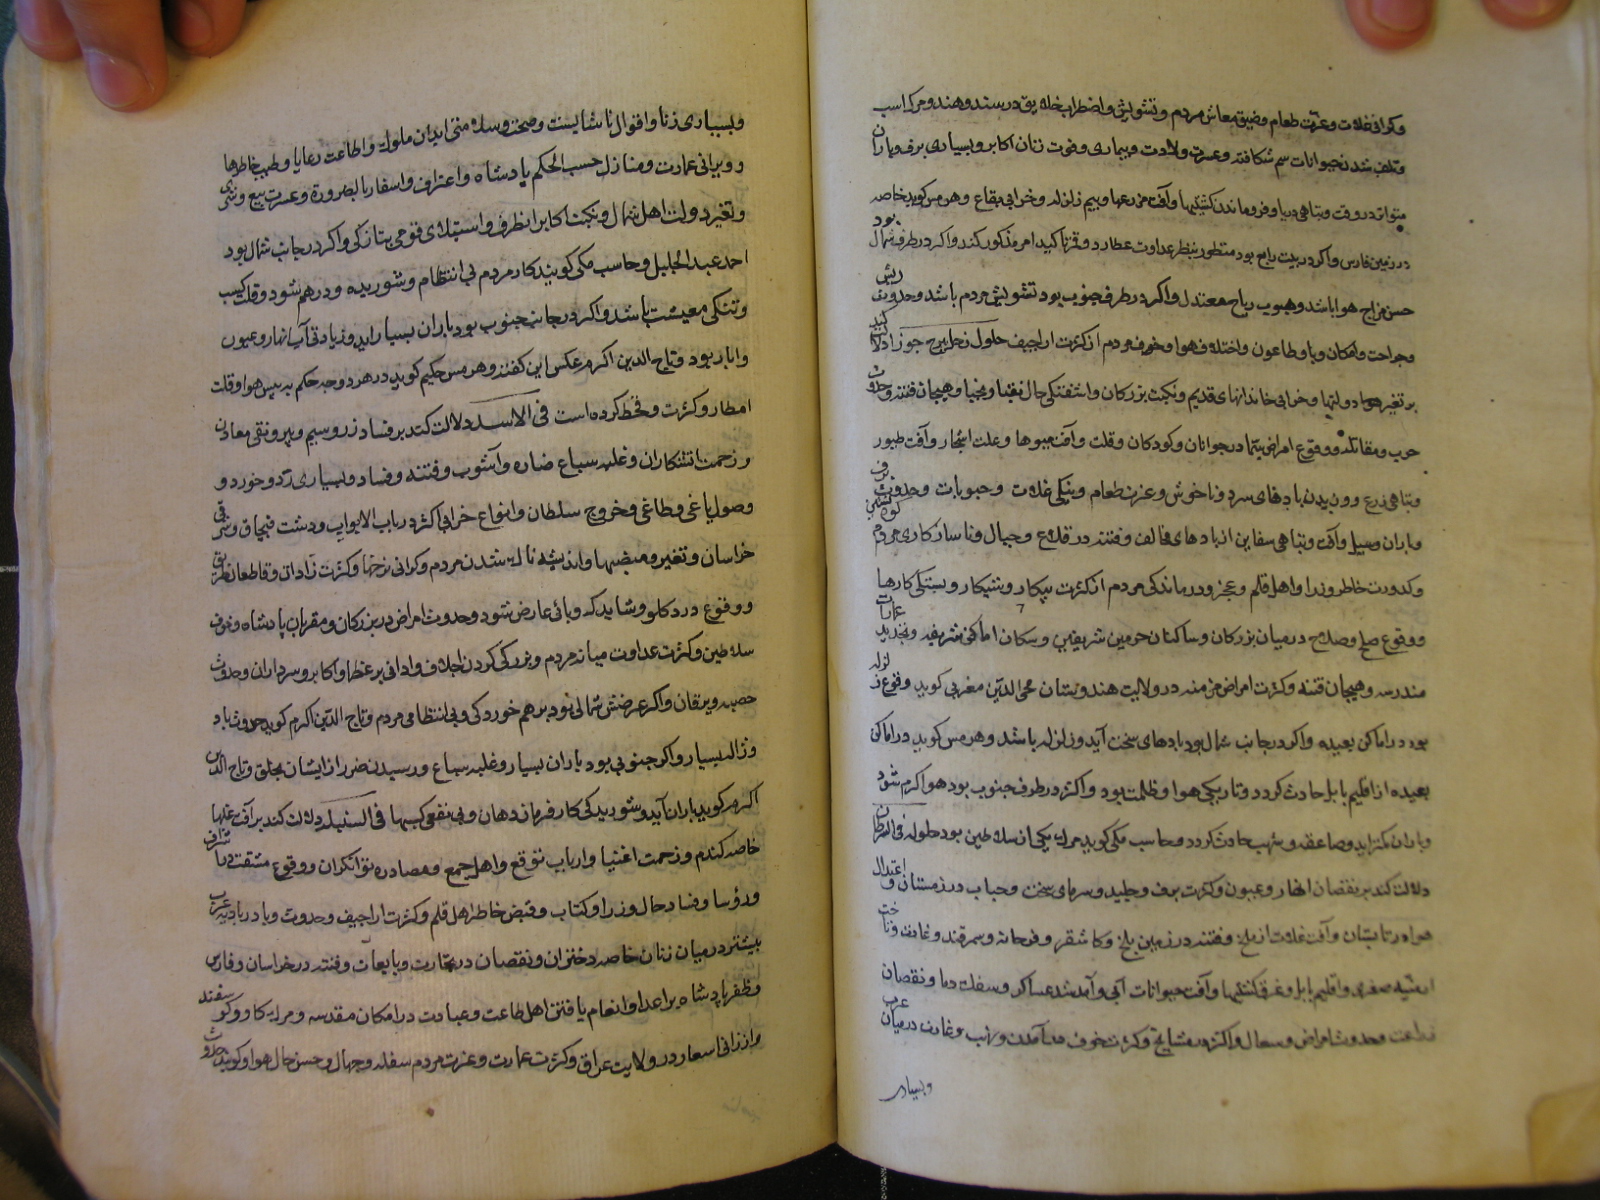 وکرانی غلات وعزت طعام وضیق معاش مردم وتشویش واضطراب خلایق در سند وهند ومرک اسب
وتلف شدن حیوانات سم شکافته وعسرت ولادت وبیماری وفوت زنان اکابر وبسیاری برف وباران
متواتر در وقت وتباهی دریا وفرو ماندن کشتیها وآفت مزرعها وبیم زلزله وخرابی بقاع وهرمس کوید خاصه
در زمین فارس واکر در بیت رابع بود منظور بنظر عداوت عطارد وقرناکید امر مذکور کند واکر در طرف شمال بود
حسن مزاج هوا باشد وهبوب ریاح معتدل واکر در طرف جنوب بود تشویش مردم باشد وحدوث ریش
وجراحت وامکان وبا وطاعون واختلاف هوا وخوف مردم از کثرت اراجیف حلول زحل ببرج جوزا دلالت کند
بر تغیر دولتها وخرابی خاندانهای قدیم ونکبت بزرکان واشفتکی حال نقبا ونجبا وهیجان فتنه وحدوث
حرب ومقاتله ووقوع امراض بیشما در جوانان وکودکان وقلت وآفت میوها وعلت اشجار وآفت طیور
وتباهی زرع ووزیدن بادهای سرد وناخوش وعزت طعام وتنکی غلات وحبوبات وحدوث برف
وباران وسیل وآفت وتباهی سفاین از بادهای مخالف وفتنه در قلاع وجبال وناسازکاری مردم کوه نشین
وکدورت خاطر وزرا واهل قلم وعجز ودرماندکی مردم از کثرت بیکار وشیکار وبستکی کارها
ووقوع صلح وصلاح در میان بزرکان وساکنان حرمین شریفین وسکان اماکن شریفه وتجدید عمارات
مندرسه وهیجان فتنه وکثرت امراض مزمنه در ولایت هندوستان محی الدین مغربی کوید وقوع زلزله
بود در اماکن بعیده واکر در جانب شمال بود بادهای سخت آید وزلزله باشد وهرمس کوید در اماکن
بعیده از اقلیم بابل حادث کردد وتاریکی هوا وظلمت بود واکر در طرف جنوب بود هوا کرم شود
وباران کمتر اید وصاعقه وشهب حادث کردد ومحاسب مکی کوید مرک یکی از سلاطین بود حلوله فی السرطان
دلالت کند بر نقصان انهار وعیون وکثرت برف وجلید وسرمای سخت وحباب در زمستان واعتدال
هوا در تابستان وآفت غلات از ملخ وفتنه در زمین بلخ وکاشقر وفرحانه وسمرقند وغارت وتاخت
ارمنیه صغری واقلیم بابل وغرق کشتیها وآفت حیوانات آبی وآمد شد عساکر وسفک دما ونقصان
زراعت وحدوث امراض وسعال واکثر در مشایخ وکثرت خوف ونهب وغارت در میان عرب
وبسیاری
وبسیاری زنا واقوال ناشایست وصحت وسلامتی ابدان ملوک واطاعت رعایا وطیب خاطرها
وویرانی عمارت ومنازل حسب الحکم پادشاه واعتراف واسفار بالضرورة وعسرت بیع وشری
وتغیر دولت اهل شمال ونکبت اکابر آنطرف واستیلای قومی بتازکی واکر در جانب شمال بود
احمد عبد الجلیل وحاسب مکی کویند کار مردم بی انتظام وشوریده ودرهم شود وقلت کسب
وتنکی معیشت باشد واکر در جانب جنوب بود باران بسیار اید وزیادتی آب انهار وعیون
وابار بود وتاج الدین اکرم عکس این کفته وهرمس حکیم کوید در هر دو وجه حکم به یبس هوا وقلت
امطار وکثرت وقحط کرده است فی الاسد دلالت کند بر فساد زر وسیم وبیرونقی معادن
وزحمت آتشکاران وغلبه سباع ضاره وآشوب وفتنه وفساد وبسیاری زد وخورد و
وصول یاغی وطاغی وخروج سلطان وانواع خرابی اکثر در باب الابواب ودشت قبچاق وشرقی
خراسان وتغیر ومنصبها واندیشه ناک شدن مردم وکرانی نرخها وکثرت زادان وقاطعان طریق
ووقوع درد کلو وشاید که وبائی عارض شود وحدوث امراض در بزرکان ومقربان پادشاه وخوف
سلاطین وکثرت عداوت میانه مردم وبزرکی کردن اجلاف وادانی بر عظما واکابر وسرداران وحدوث
حصبه ویرقان واکر عرضش شمالی بود برهم خوردکی وبی انتظامی مردم وتاج الدین اکرم کوید حدوث باد
وژاله بسیار واکر جنوبی بود باران بسیار وغلبه سباع ورسیدن ضرر از ایشان بخلق وتاج الدین
اکرم کوید باران آید وشوریدکی کار فرماندهان وبی نفعی کسبها فی السنبله دلالت کند بر آفت غلها
خاصه کندم وزحمت اغنیا وارباب توقع واهل جمع ومصادره توانکران ووقوع مشقت در اشراف
ورؤسا وفساد حال وزرا وکتاب وقبض خاطر اهل قلم وکثرت اراجیف وحدوث وبا در بادیه عرب
بیشتر در میان زنان خاصه دختران ونقصان در تجارت وبایعات وفتنه در خراسان وفارس
وظفر پادشاه بر اعدا وانعام یافتن اهل طاعت وعبادت در امکان مقدسه ومرک کاو وکوسفند
وارزانی اسعار در ولایت عراق وکثرت عمارت وعزت مردم سفله وجهال وحسن حال هوا وکوید حدوث